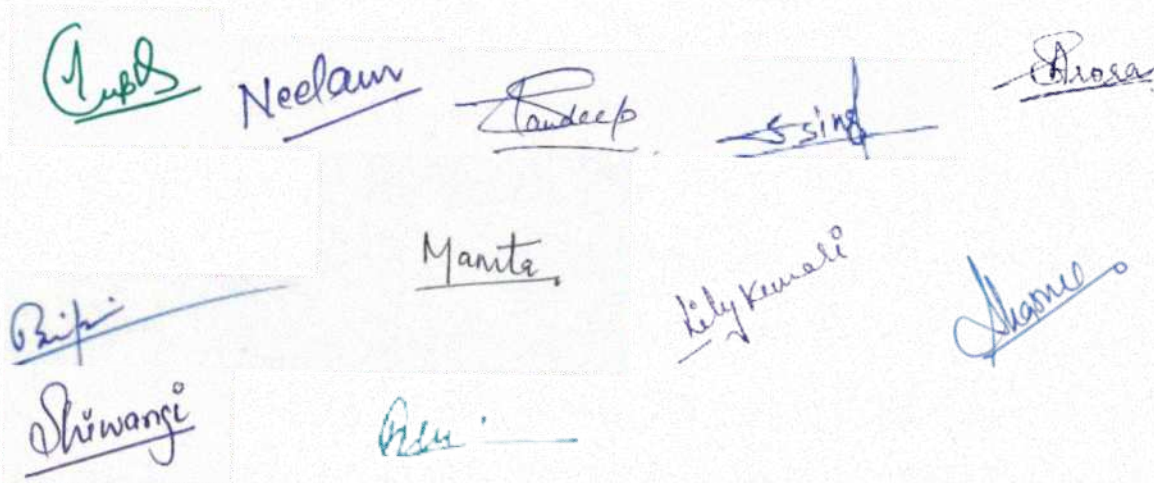 Gupta
Neelam
Sandeep
S Sing
Arora
Mamta
Bipin
Lily Kumari
Sharma
Shiwangi